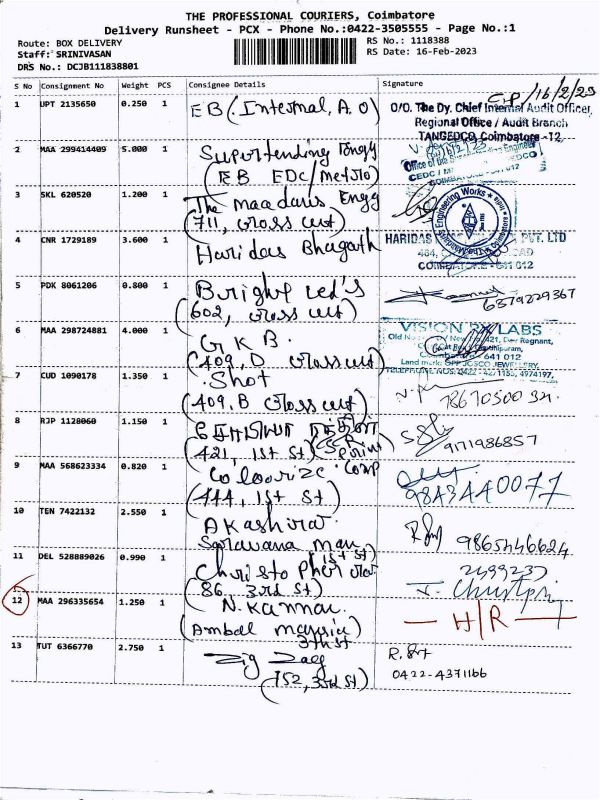 THE PROFESSIONAL COURIERS, Coimbatore
Delivery Runsheet - PCX - Phone No.:0422-3505555 - Page No.:1
Route: BOX DELIVERY
RS No.: 1118388
Staff: SRINIVASAN
RS Date: 16-Feb-2023
DRS No.: DCJB111838801
S No Consignment No Weight PCS Consignee Details Signature
1 UPT 2135650 0.250 1 EB (. Internal, A. O)
16/2/23
O/O. The Dy. Chief Internal Audit Officer,
Regional Office / Audit Branch
TANGEDCO, Coimbatore -12
2 MAA 299414409 5.000 1 Supertending Engg
(EB EDC/Metro)
Office of the Superintending Engineer
3 SKL 620520 1.200 1 The maadaris Engg
711, cross cut)
Engineering Works
4 CNR 1729189 3.600 1 Haridas Bhagath
HARIDAS PVT. LTD
COIMBATORE - 641 012
5 PDK 8061206 0.800 1 Bright Led's
(602, cross cut)
6379229367
6 MAA 298724881 4.000 1 GKB.
(409, D cross cut)
VISION RX LABS
641 012
Land mark: OPP JOSCO JEWELLERY,
7 CUD 1090178 1.350 1 Shot
(409, B cross cut)
8 RJP 1128060 1.150 1
(421, 1st St)
9171986857
9 MAA 568623334 0.820 1 Colourize Comp
(444, 1st St)
9843440077
10 TEN 7422132 2.550 1 Akashira
Saravana Man
(1st St)
9865446624
11 DEL 528889026 0.990 1 Christopher
(86, 3rd St)
2499237
12 MAA 296335654 1.250 1 N. Kannan.
(Ambal
H/R
13 TUT 6366770 2.750 1 Zig Zag
(152, 3rd St)
0422-4371166